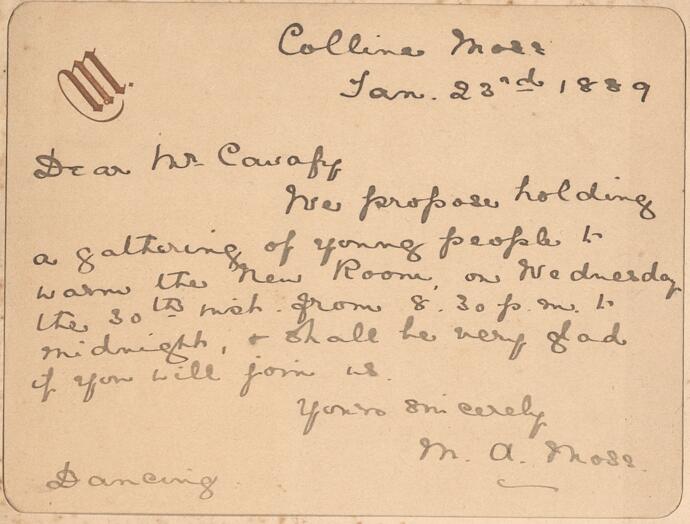 M.
Colline Moss
Jan. 23rd 1889
Dear Mr Cavafy
We propose holding
a gathering of young people to
warm the New Room, on Wednesday
the 30th inst. from 8.30 p.m. to
midnight, & shall be very glad
if you will join us.
Yours sincerely
M. A. Moss.
Dancing